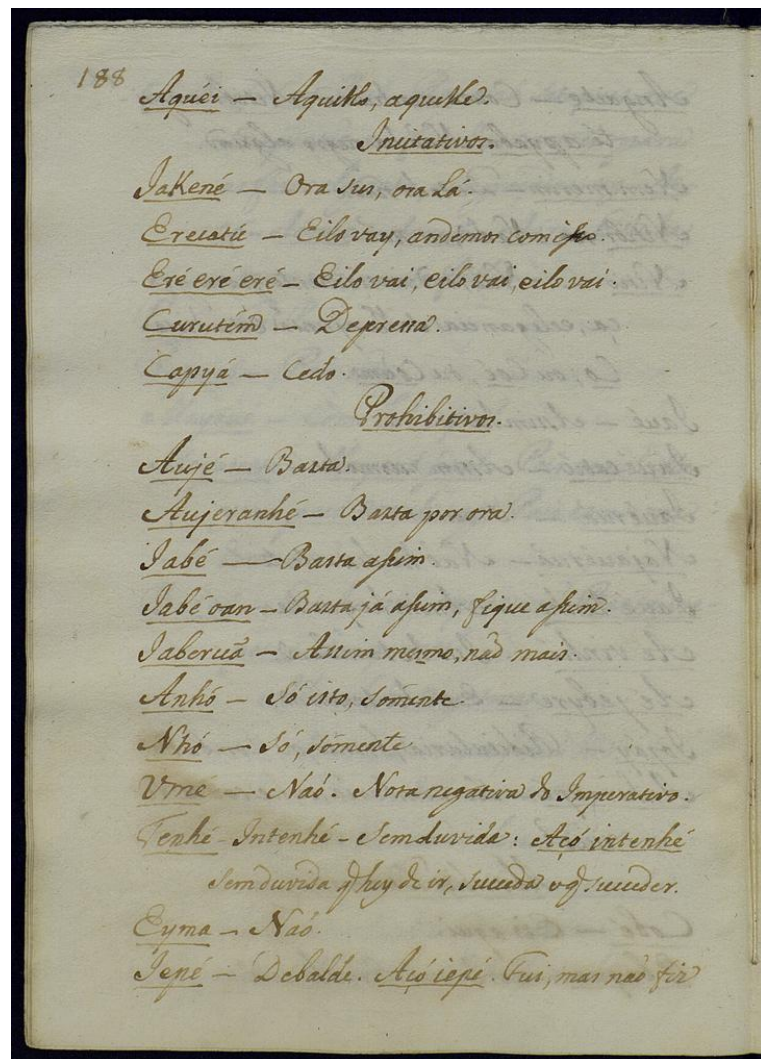 188
Aquéi — Aquillo, aquelle.
Incitativos.
Jakené — Ora sus, ora lá.
Erecatú — Eilo vay, andemos com isso.
Eré eré eré — Eilo vai, eilo vai, eilo vai.
Curutém — Depressa.
Capyá — Cedo.
Prohibitivos.
Aujé — Basta.
Aujeranhé — Basta por ora.
Jabé — Basta assim.
Jabé oan — Basta já assim, fique assim.
Jaberuã — Assim mesmo, não mais.
Anhó — Só isto, sómente.
Nhó — Só, sómente
Vmé — Naó. Nota negativa do Imperativo.
Tenhé - Intenhé - Sem duvida: Açó intenhé
sem duvida q̃ hey de ir, succeda o q̃ succeder.
Eyma — Naó.
Jepé — Debalde. Açó iepé. Fui, mas naõ fiz